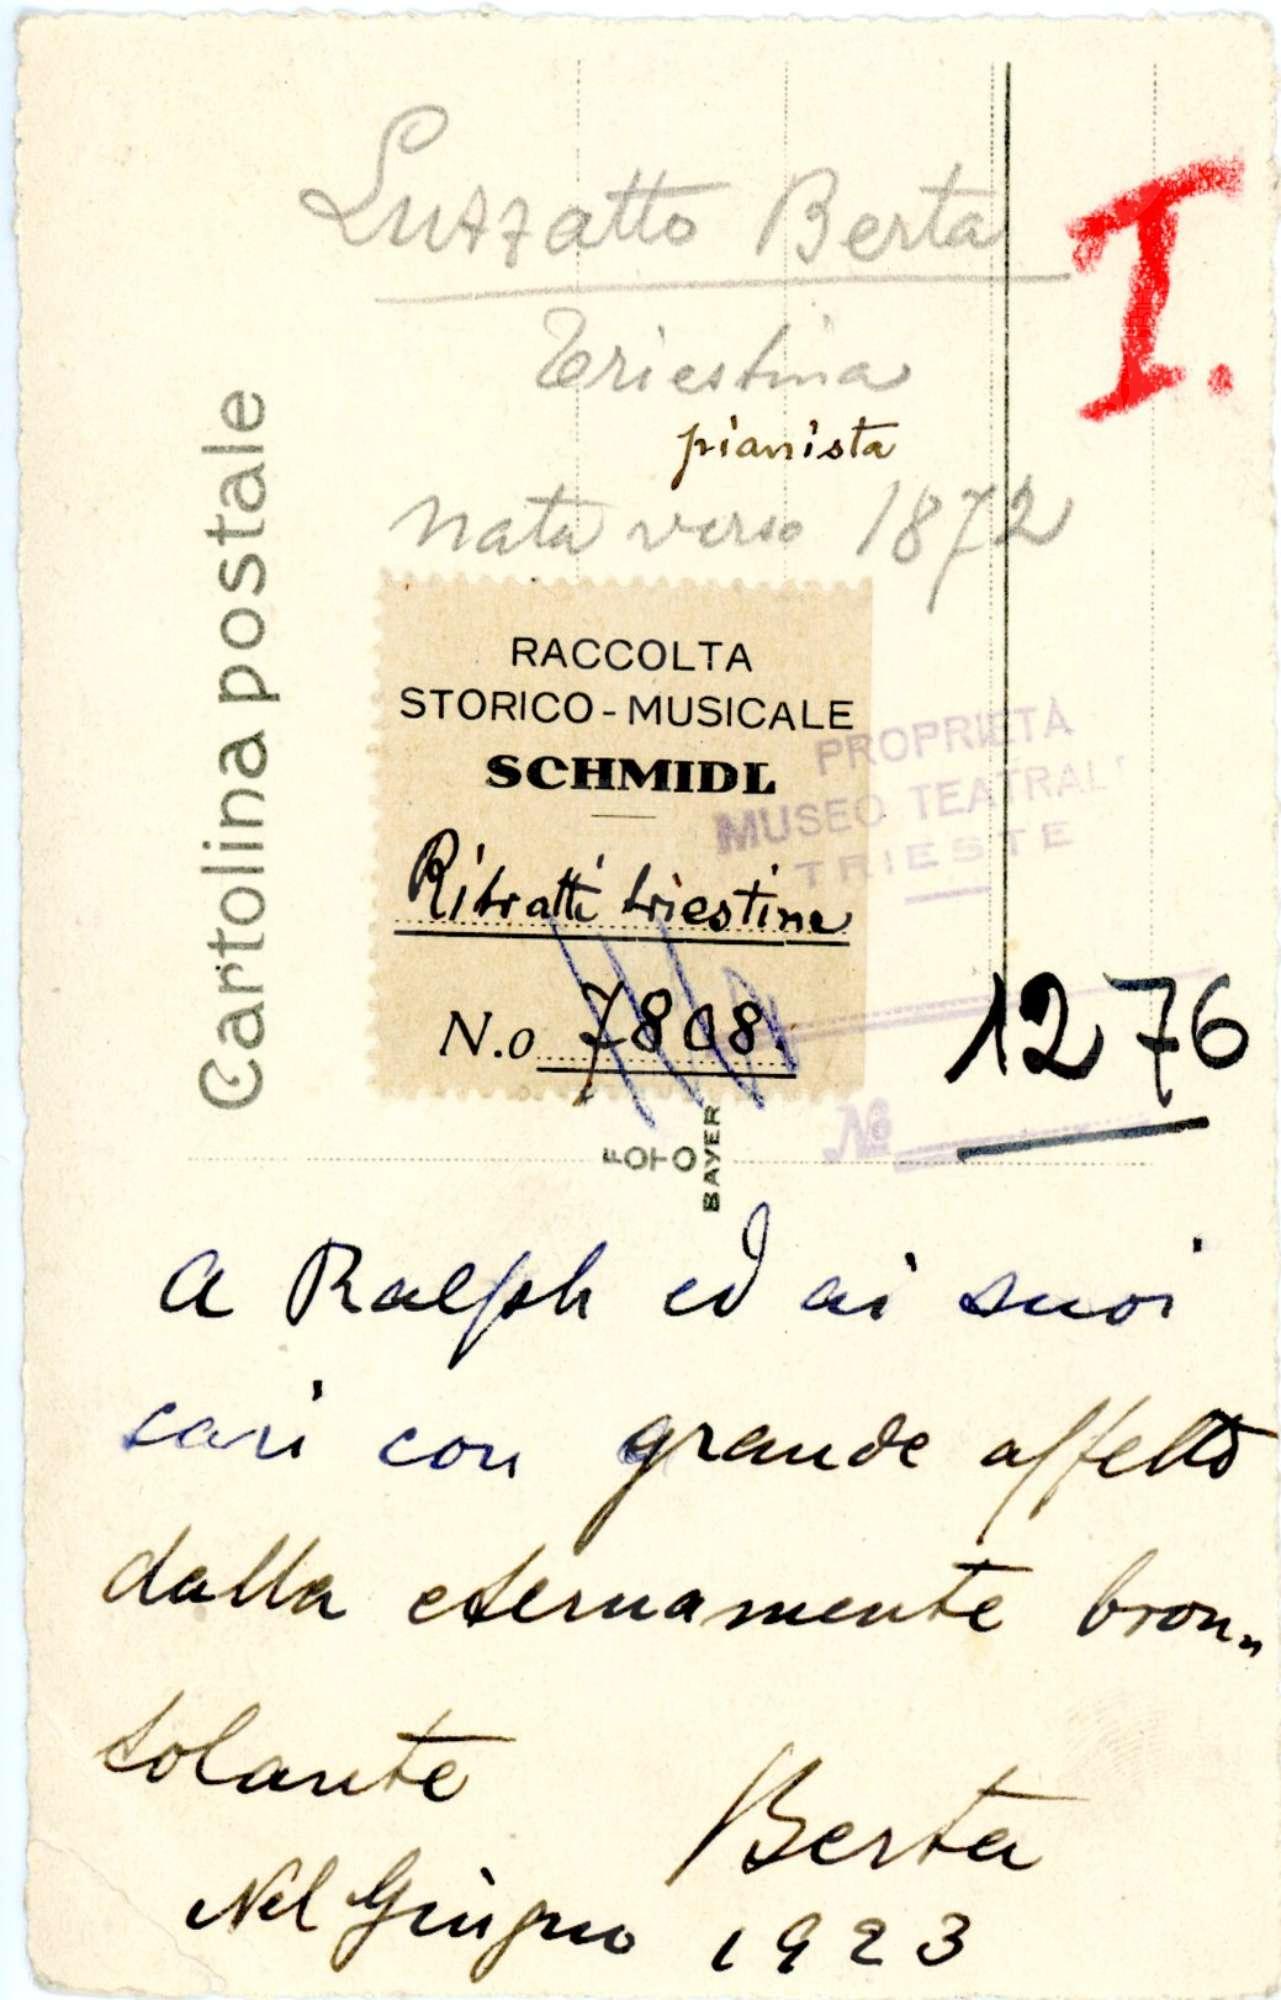 Luzzatto Berta
I.
Triestina
pianista
nata verso 1872
Cartolina postale
RACCOLTA
STORICO-MUSICALE
SCHMIDL
Ritratti triestine
N.o 7808.
PROPRIETÀ
MUSEO TEATRALE
TRIESTE
1276
No
FOTO
BAYER
A Ralph ed ai suoi
cari con grande affetto
dalla eternamente bron„
tolante
Berta
Nel Giugno 1923